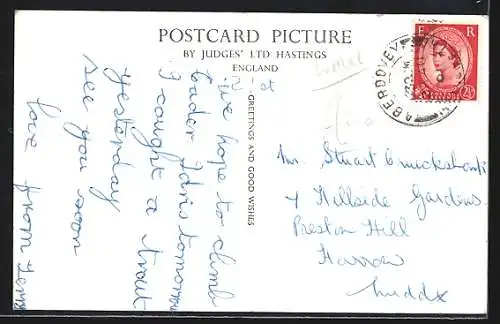 POSTCARD PICTURE
BY JUDGES' LTD HASTINGS
ENGLAND
GREETINGS AND GOOD WISHES
21st
We hope to climb
Cader Idris tomorrow
I caught a trout
yesterday
see you soon
love from
E R
ABERDOVEY
2½
Mr. Stuart Cruickshank
4 Hillside Gardens
Preston Hill
Harrow
Middx